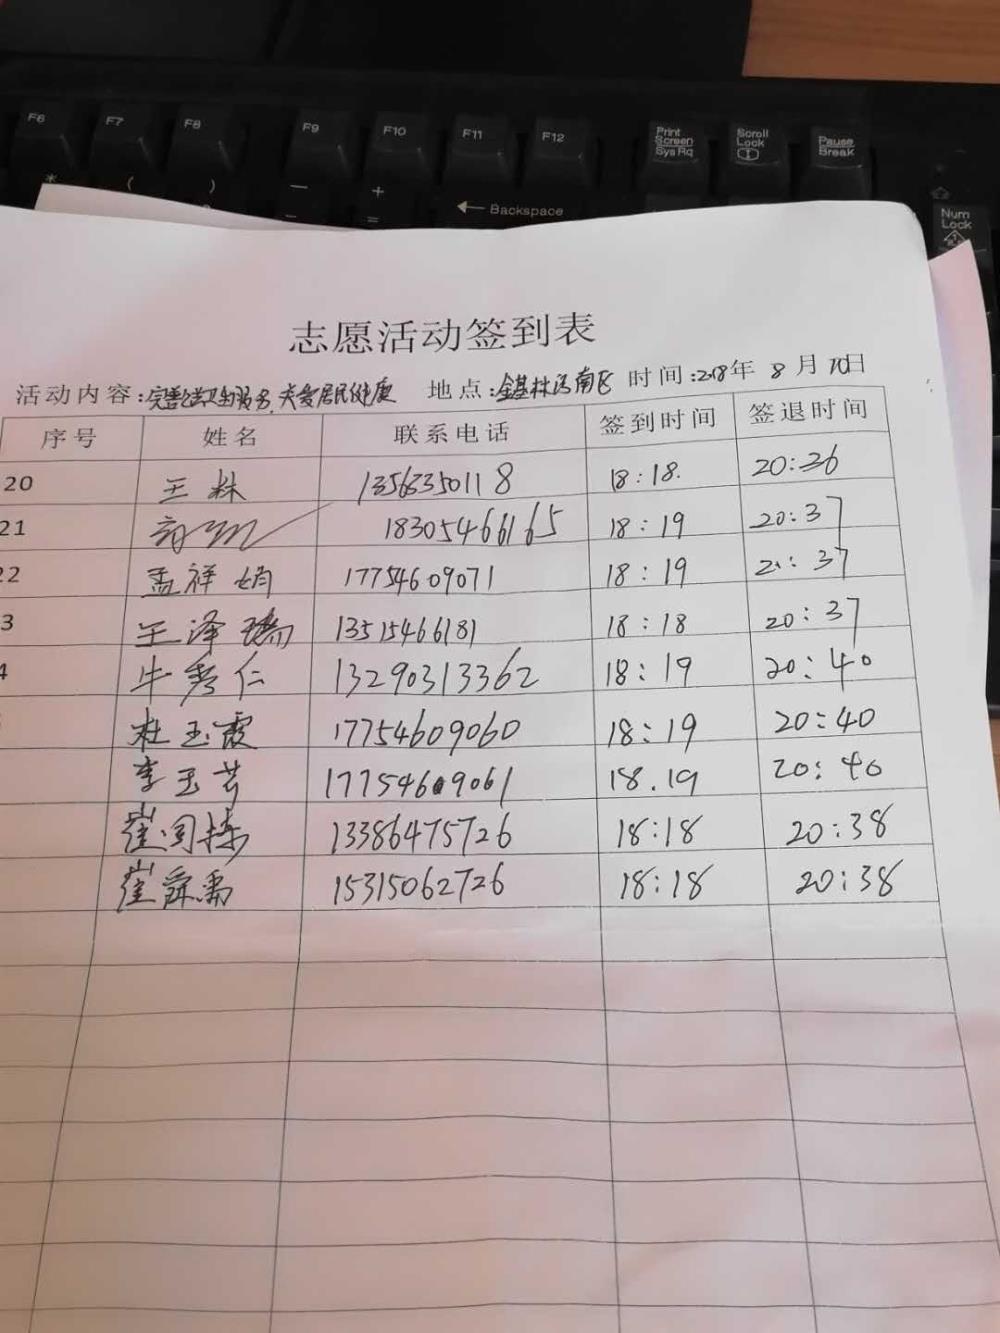 F6 F7 F8 F9 F10 F11 F12 Print Screen Sys Rq Scroll Lock Pause Break
* ( ) — +
- = Backspace Num Lock
志愿活动签到表
活动内容:完善公共卫生服务,关爱居民健康 地点:金基林语南区 时间:2018年8月10日
序号 姓名 联系电话 签到时间 签退时间
20 王林 13563350118 18:18. 20:36
21 18305466165 18:19 20:37
22 孟祥娟 17754609071 18:19 20:37
3 王泽瑞 13515466181 18:18 20:37
4 牛秀仁 13290313362 18:19 20:40
杜玉霞 17754609060 18:19 20:40
李玉芳 17754609061 18.19 20:40
崔同栋 13386475726 18:18 20:38
崔舜禹 15315062726 18:18 20:38